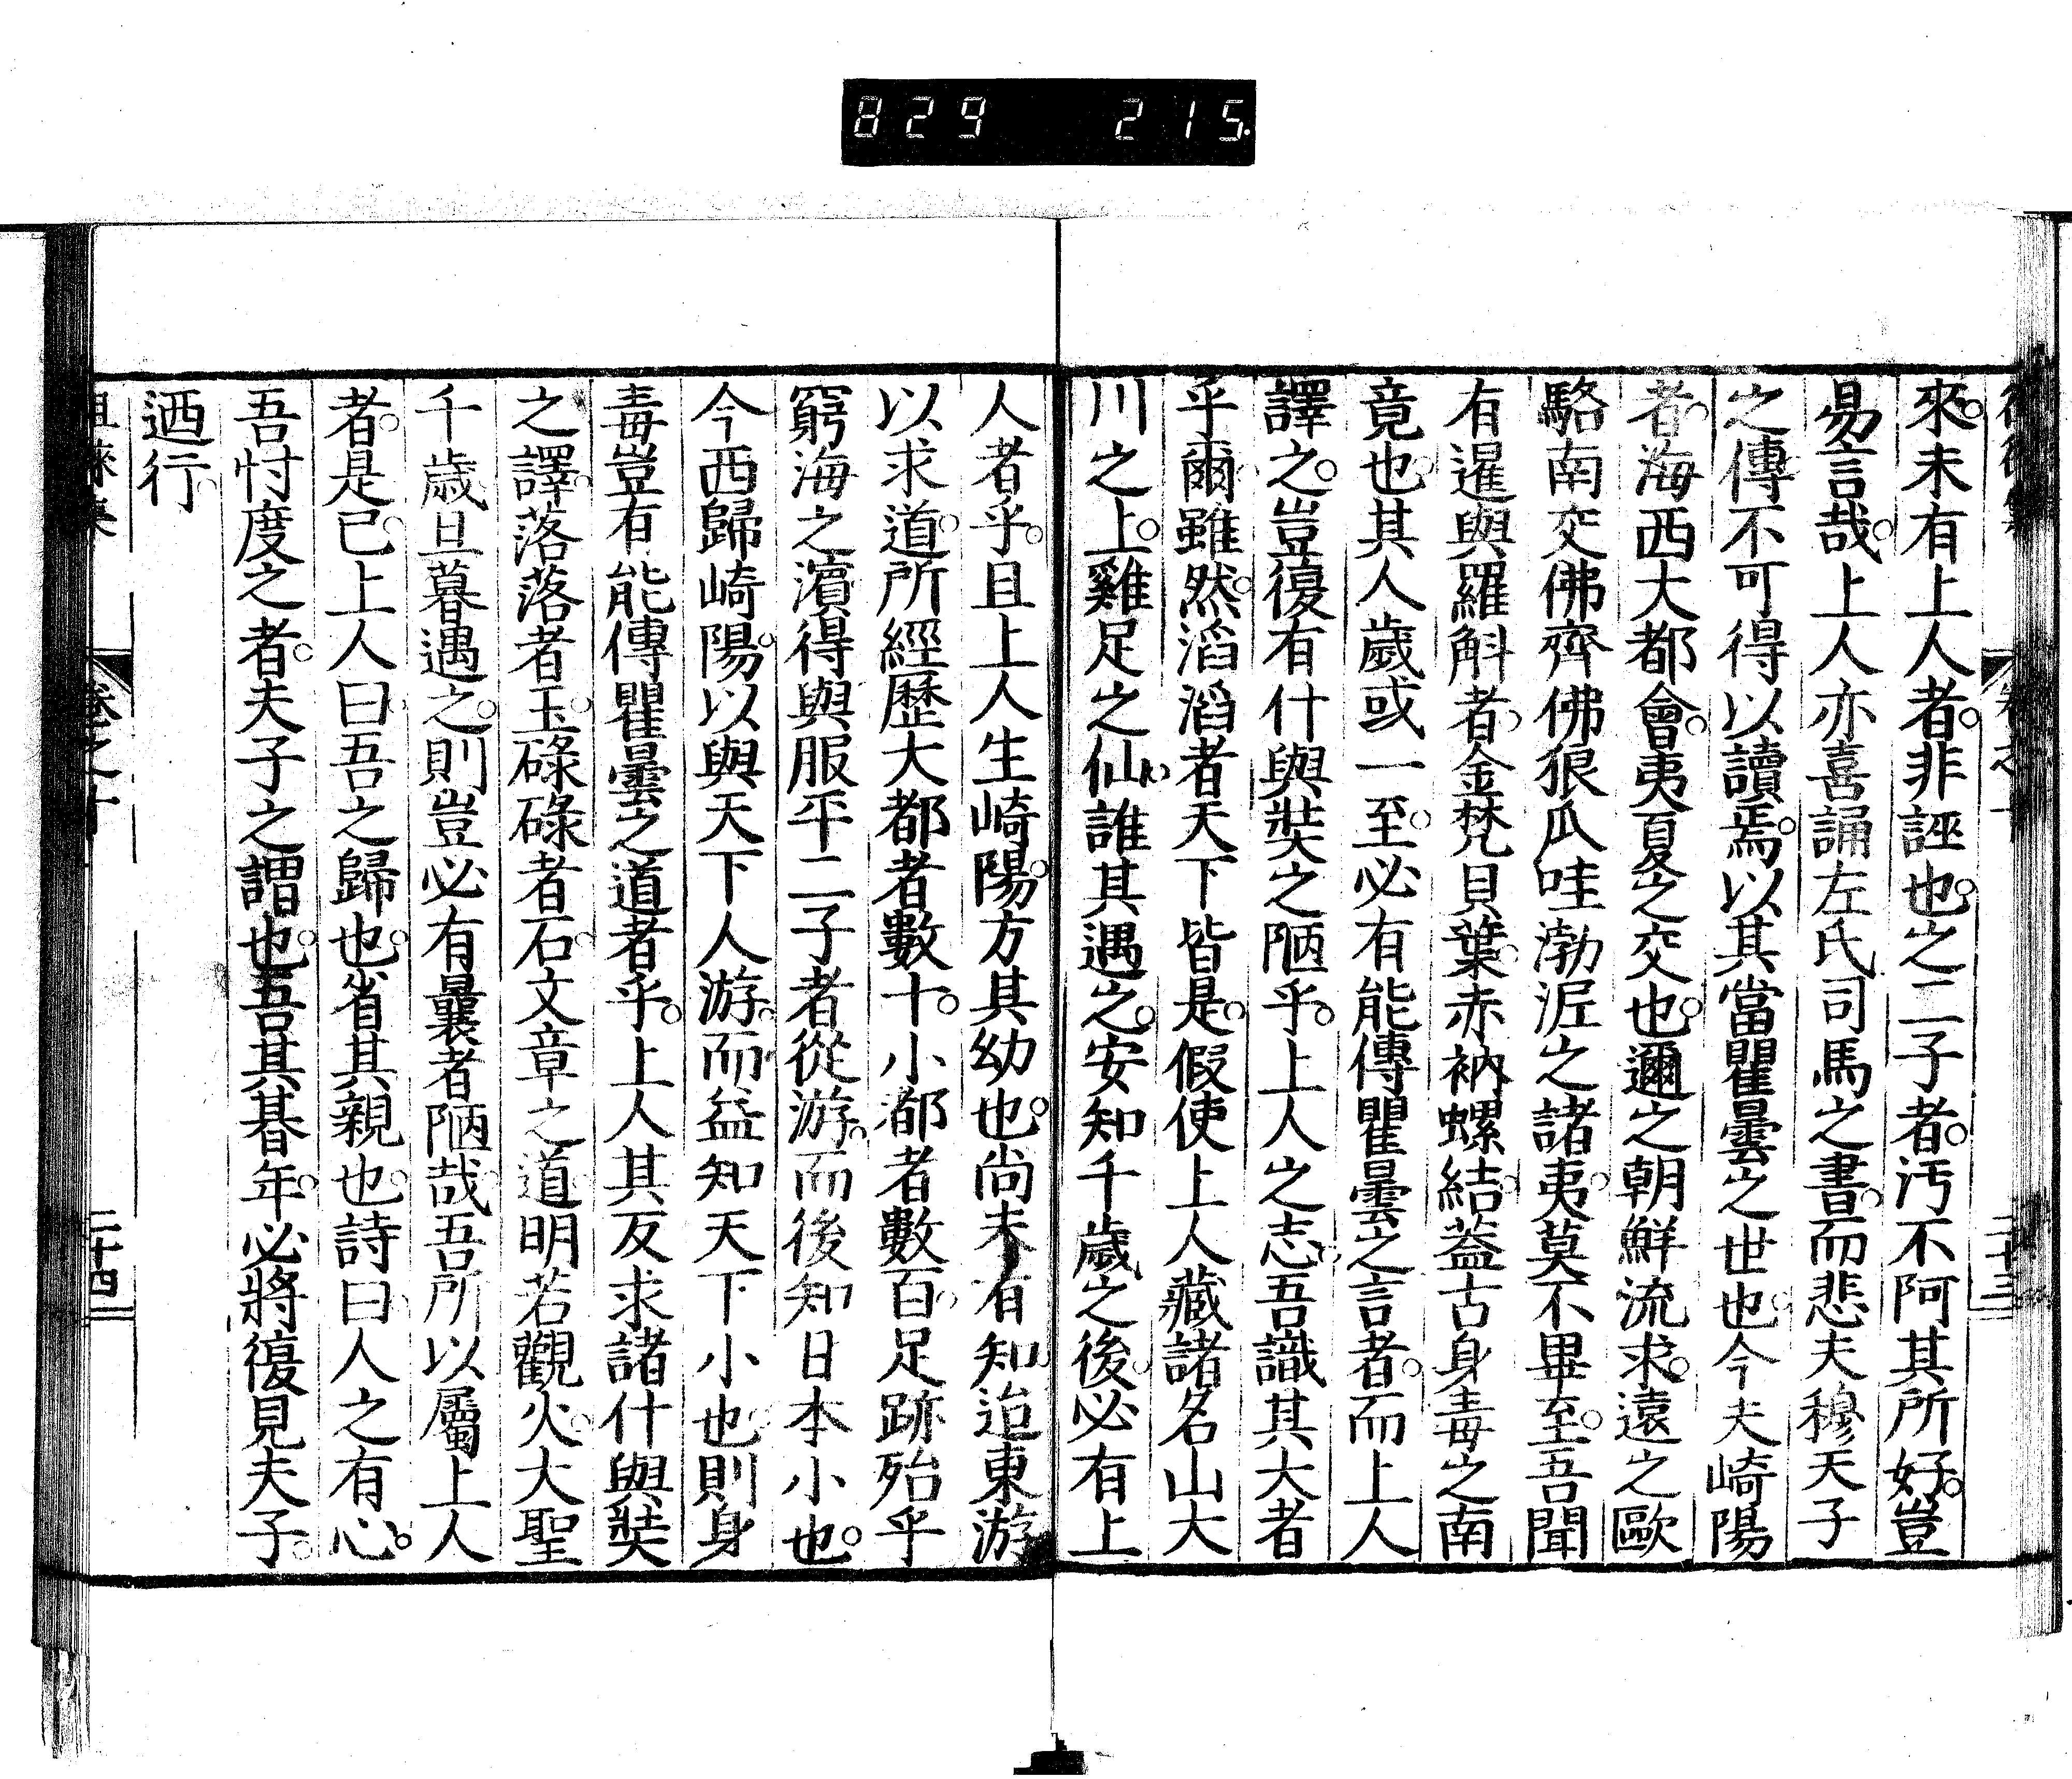 829 215.
來。未有上人者。非誣也。之二子者。汚不阿其所好。豈
易言哉。上人亦喜誦左氏司馬之書。而悲夫穆天子
之傳不可得以讀焉。以其當瞿曇之世也。今夫崎陽
者。海西大都會。夷夏之交也。邇之朝鮮流求。遠之歐
駱南交佛齊佛狼瓜哇渤泥之諸夷。莫不畢至。吾聞
有暹與羅斛者。金梵貝葉。赤衲螺結。葢古身毒之南
竟也。其人歲或一至。必有能傳瞿曇之言者。而上人
譯之。豈復有什與奘之陋乎。上人之志。吾識其大者
乎爾。雖然。滔滔者天下皆是。假使上人藏諸名山大
川之上。雞足之仙。誰其遇之。安知千歲之後。必有上
人者乎。且上人生崎陽。方其幼也。尚未有知。迨東游
以求道。所經歷大都者數十。小都者數百。足跡殆乎
窮海之濱。得與服平二子者從游。而後知日本小也。
今西歸崎陽。以與天下人游。而益知天下小也。則身
毒豈有能傳瞿曇之道者乎。上人其反求諸什與奘
之譯。落落者玉。碌碌者石。文章之道。明若觀火。大聖
千歲旦暮遇之。則豈必有曩者陋哉。吾所以屬上人
者。是已。上人曰。吾之歸也。省其親也。詩曰。人之有心。
吾忖度之者。夫子之謂也。吾其朞年。必將復見夫子。
迺行。
徂徠集 卷之十 二十四